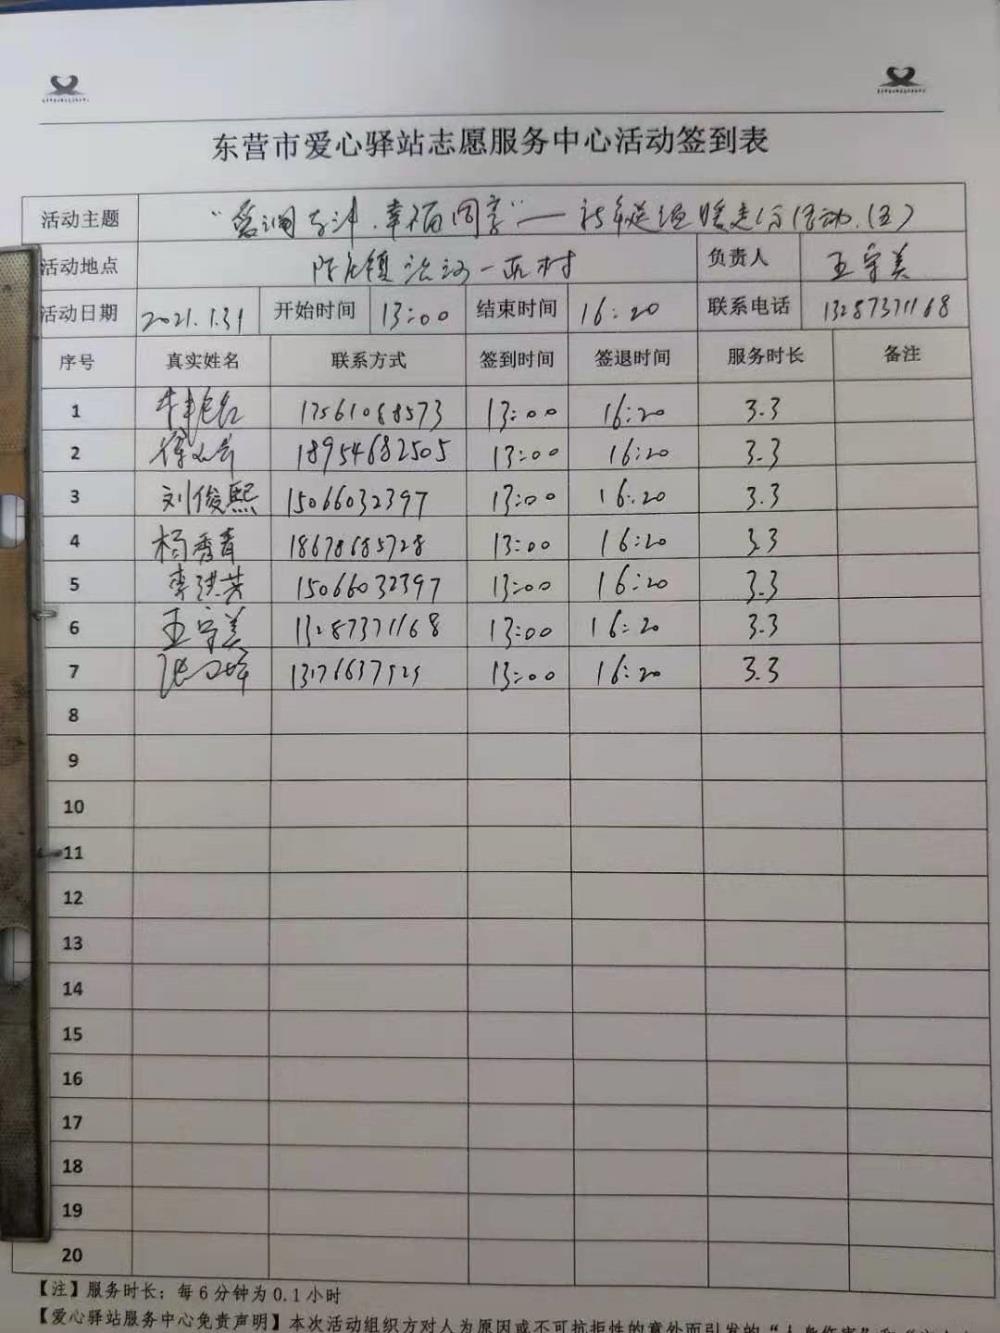 东营市爱心驿站志愿服务中心活动签到表
活动主题 "爱润东津.幸福同享"—新年送温暖走访活动.(五)
活动地点 陈庄镇 一西村 负责人 王宇美
活动日期 2021.1.31 开始时间 13:00 结束时间 16:20 联系电话 13287371168
序号 真实姓名 联系方式 签到时间 签退时间 服务时长 备注
1 17561088573 13:00 16:20 3.3
2 18954682505 13:00 16:20 3.3
3 刘俊熙 15066032397 13:00 16:20 3.3
4 杨秀青 18678685728 13:00 16:20 3.3
5 李洪芳 15066032397 13:00 16:20 3.3
6 王宇美 13287371168 13:00 16:20 3.3
7 13:00 16:20 3.3
8
9
10
11
12
13
14
15
16
17
18
19
20
【注】服务时长：每6分钟为0.1小时
【爱心驿站服务中心免责声明】本次活动组织方对人为原因或不可抗拒性的意外而引发的"人身伤害"和